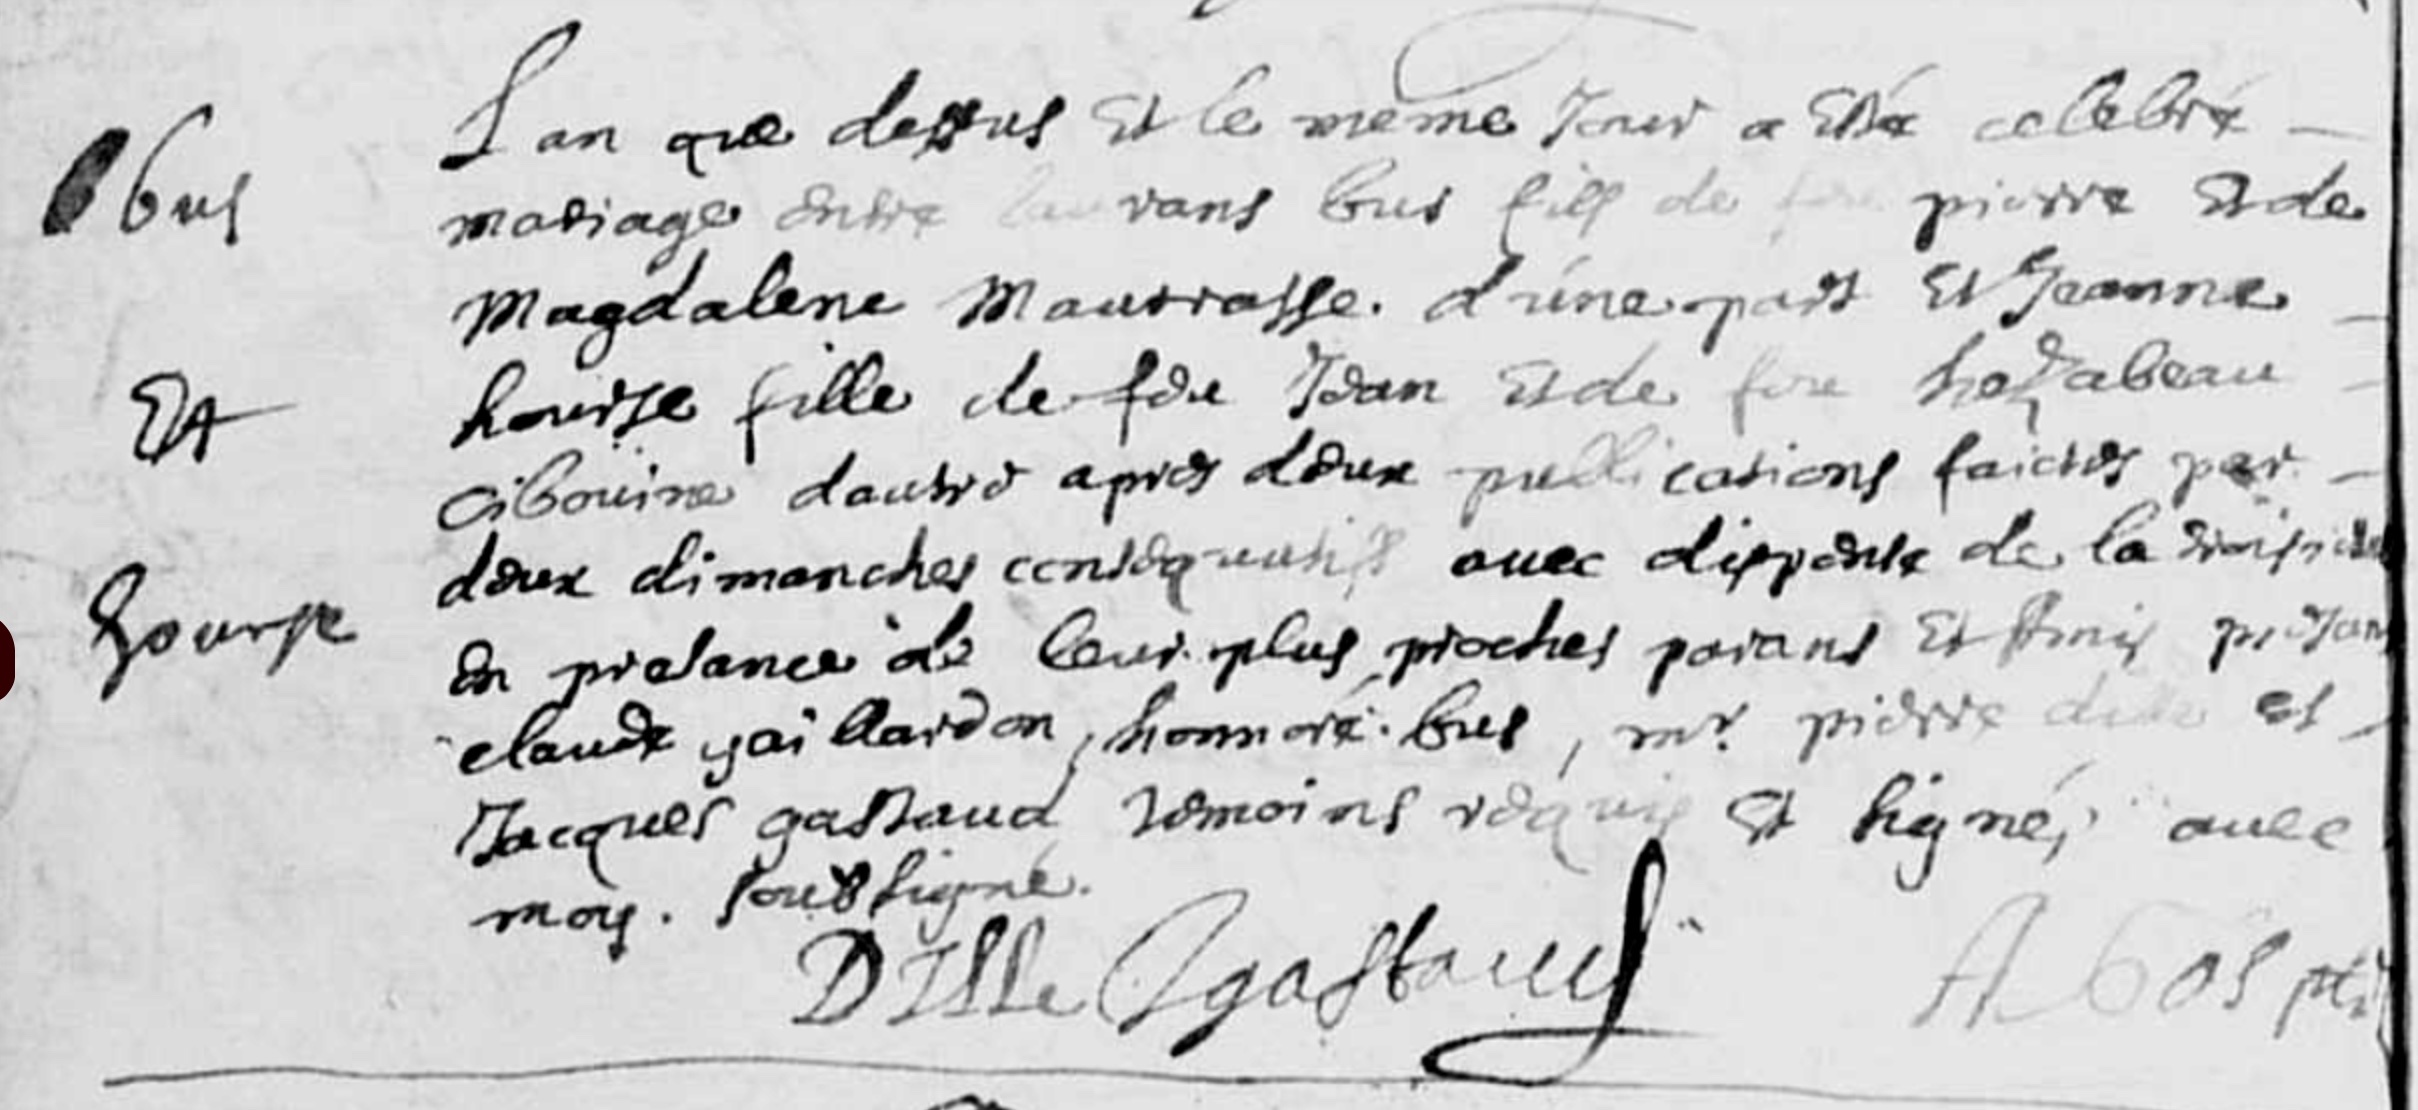 bus
Et
hourse
L an que dessus Et le meme Jour a Esté celebré
mariage entre laurans bus fils de feu pierre Et de
Magdalene Maurrasse. d'une part Et Jeanne
hourse fille de feu Jean Et de feue
d'autre apres deux publications faictes par
deux dimanches consequutifs avec dispense de la
En presance de leur plus proches parans Et amis
claude gaillardon, honnoré bus, mr. pierre et
Jacques gastaud temoins requis Et signés avec
moy. soubsigné.
DIsle Jgastaud A bos